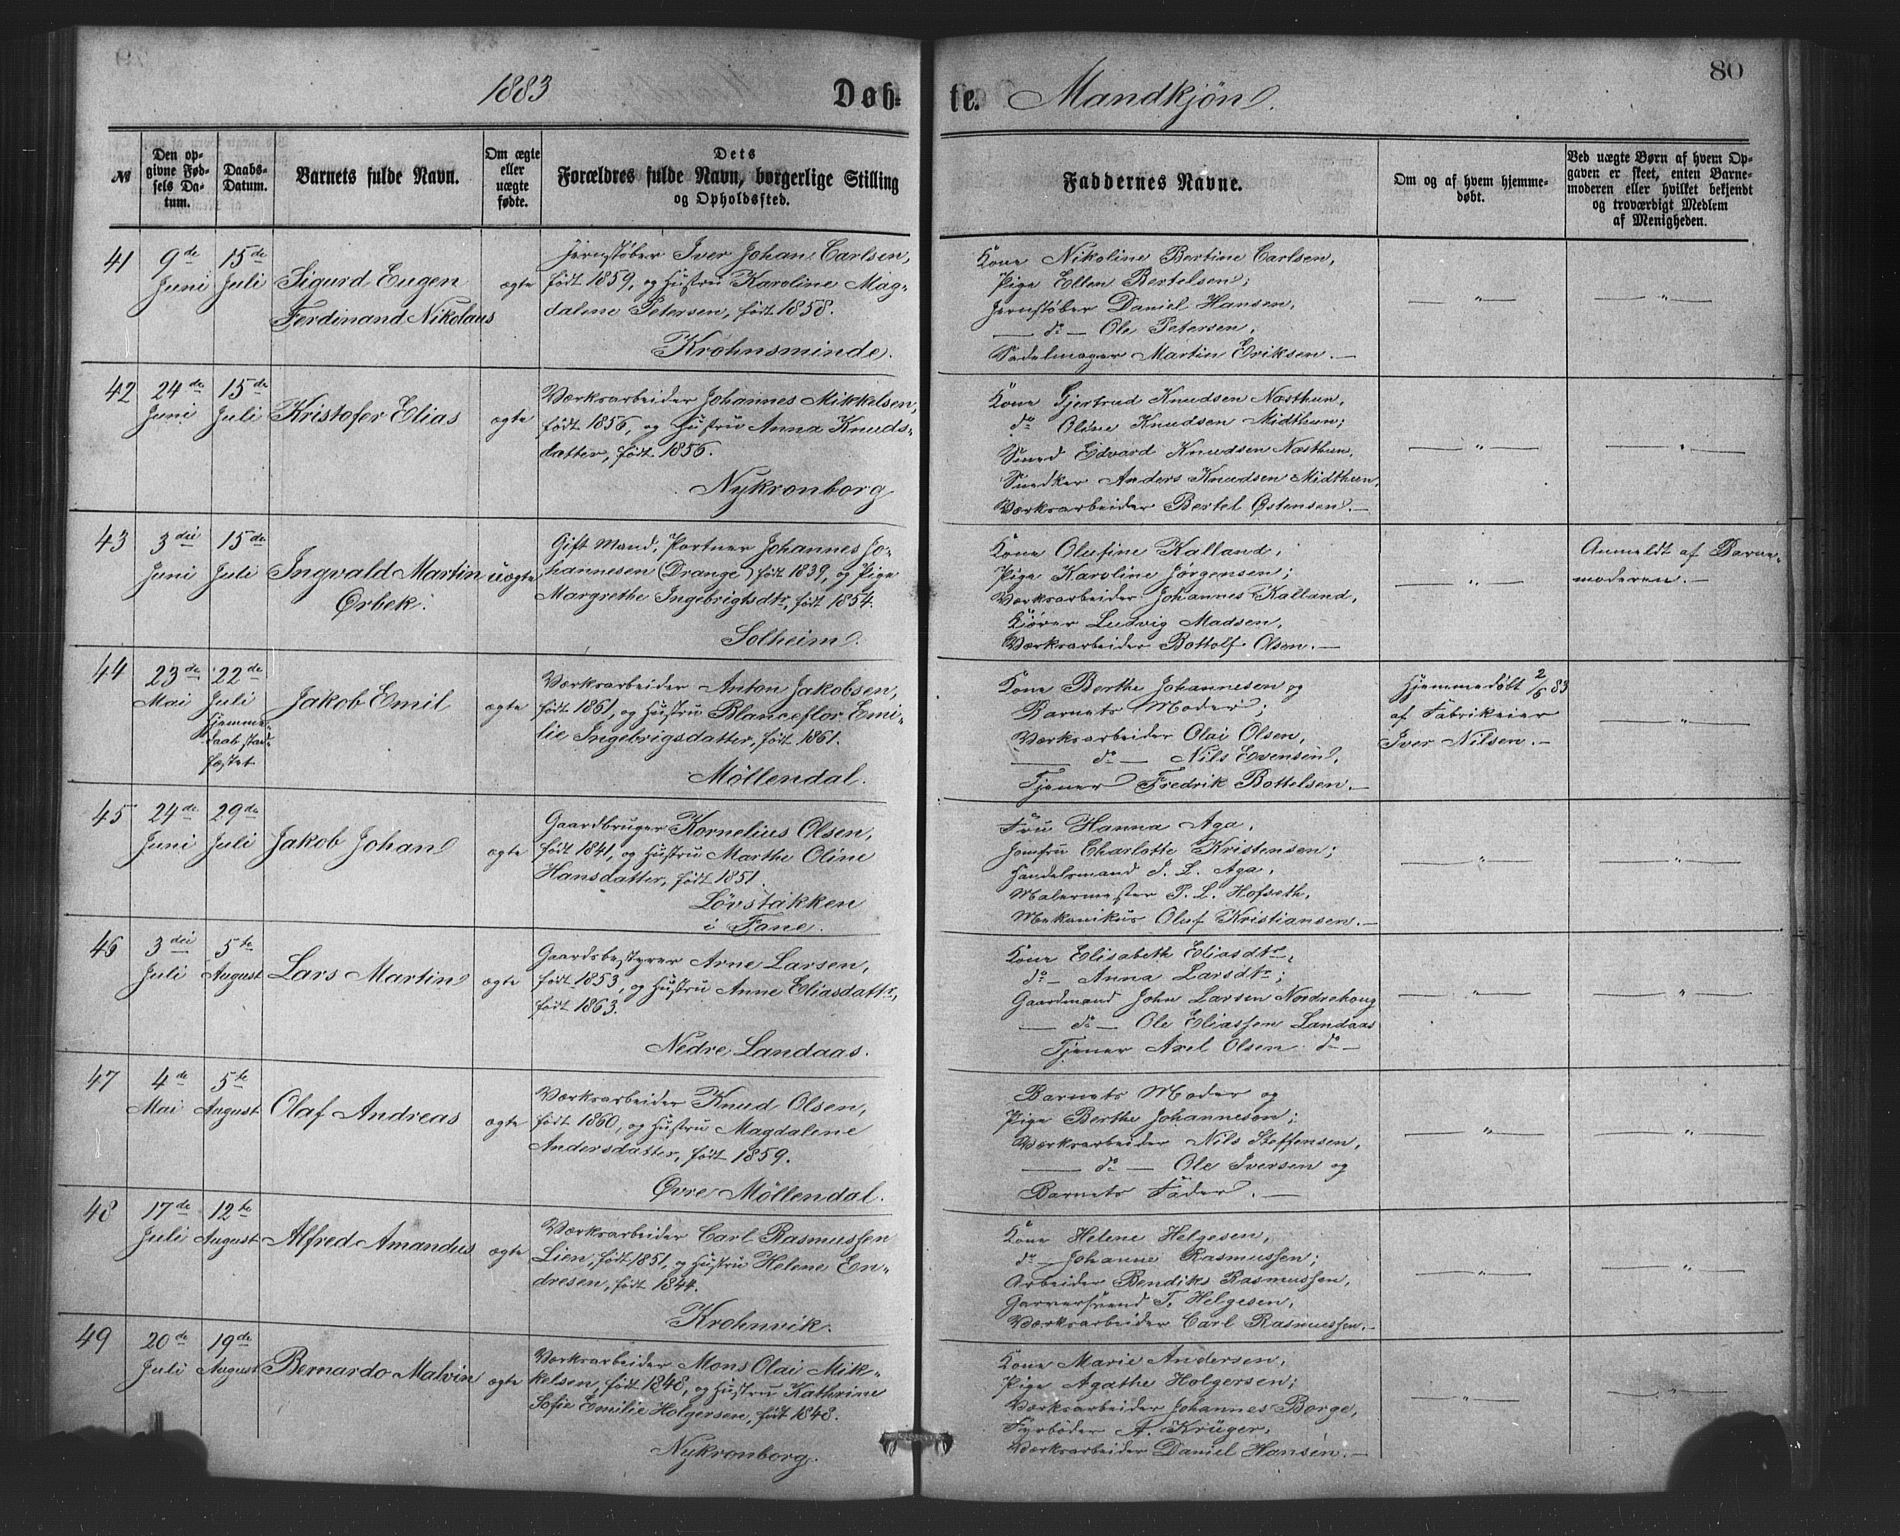 80
1883 Døb- te. Mandkjøn.
№
Den opgivne Fødsels Datum.
Daabs-Datum.
Barnets fulde Navn.
Om ægte eller uægte fødte.
Dets Forældres fulde Navn, borgerlige Stilling og Opholdssted.
Faddernes Navne.
Om og af hvem hjemmedøbt.
Ved uægte Børn af hvem Opgaven er skeet, enten Barnemoderen eller hvilket bekjendt og troværdigt Medlem af Menigheden.
41
9de Juni
15de Juli
Sigurd Eugen
Ferdinand Nikolaus
ægte
Jernstøber Iver Johan Carlsen,
født 1859, og Hustru Karoline Mag-
dalene Petersen, født 1858.
Krohnsminde.
Kone Nikoline Bertine Carlsen,
Pige Ellen Bertelsen;
Jernstøber Daniel Hansen,
— do — Ole Petersen,
Sadelmager Martin Eriksen. —
— " —
— " —
42
24de Juni
15de Juli
Kristofer Elias
ægte
Værksarbeider Johannes Mikkelsen,
født 1856, og Hustru Anna Knuds-
datter, født 1856.
Nykronborg
Kone Gjertrud Knudsen Næsthun,
do Oline Knudsen Midthun;
Smed Edvard Knudsen Næsthun,
Snedker Anders Knudsen Midthun,
Værksarbeider Bertel Østensen. —
— " —
— " —
43
3die Juni
15de Juli
Ingvald Martin
Ørbek.
uægte
Gift Mand, Portner Johannes Jo-
hannesen (Drange) født 1839, og Pige
Margrethe Ingebrigtsdtr, født 1854.
Solheim.
Kone Olufine Kalland,
Pige Karoline Jørgensen;
Værksarbeider Johannes Kalland,
Kjører Ludvig Madsen,
Værksarbeider Bottolf Olsen. —
— " —
Anmeldt af Barne-
moderen. —
44
23de Mai
22de Juli
Hjemme-
daab stad-
fæstet
Jakob Emil
ægte
Værksarbeider Anton Jakobsen,
født 1861, og Hustru Blanceflor Emi-
lie Ingebrigsdatter, født 1861.
Møllendal.
Kone Berthe Johannesen og
Barnets Moder;
Værksarbeider Olai Olsen,
— do — Nils Evensen,
Tjener Fredrik Bottelsen. —
Hjemmedøbt 2/6 83
af Fabrikeier
Iver Nilsen. —
— " —
45
24de Juni
29de Juli
Jakob Johan
ægte
Gaardbruger Kornelius Olsen,
født 1841, og Hustru Marthe Oline
Hansdatter, født 1851.
Løvstakken
i Fane.
Fru Hanna Aga,
Jomfru Charlotte Kristensen;
Handelsmand J. L. Aga,
Malermester P. L. Hofseth,
Mekanikus Oluf Kristiansen. —
— " —
— " —
46
3die Juli
5te August
Lars Martin
ægte
Gaardsbestyrer Arne Larsen,
født 1853, og Hustru Anne Eliasdattr,
født 1863.
Nedre Landaas.
Kone Elisabeth Eliasdtr,
do — Anna Larsdtr;
Gaardmand John Larsen Nordrehoug
— do — Ole Eliassen Landaas
Tjener Axel Olsen do —
— " —
— " —
47
4de Mai
5te August
Olaf Andreas
ægte
Værksarbeider Knud Olsen,
født 1860, og Hustru Magdalene
Andersdatter, født 1859.
Øvre Møllendal.
Barnets Moder og
Pige Berthe Johannesen;
Værksarbeider Nils Steffensen,
— do — Ole Iversen og
Barnets Fader. —
— " —
— " —
48
17de Juli
12te August
Alfred Amandus
ægte
Værksarbeider Carl Rasmussen
Lien, født 1851, og Hustru Helene En-
dresen, født 1844.
Krohnvik.
Kone Helene Helgesen,
do — Johanne Rasmussen;
Arbeider Bendiks Rasmussen,
Garversvend T. Helgesen,
Værksarbeider Carl Rasmussen. —
— " —
— " —
49
20de Juli
19de August
Bernardo Malvin
ægte
Værksarbeider Mons Olai Mik-
kelsen, født 1848, og Hustru Kathrine
Sofie Emilie Holgersen, født 1848.
Nykronborg.
Kone Marie Andersen,
Pige Agathe Holgersen;
Værksarbeider Johannes Borge,
Fyrbøder A. Krüger,
Værksarbeider Daniel Hansen. —
— " —
— " —